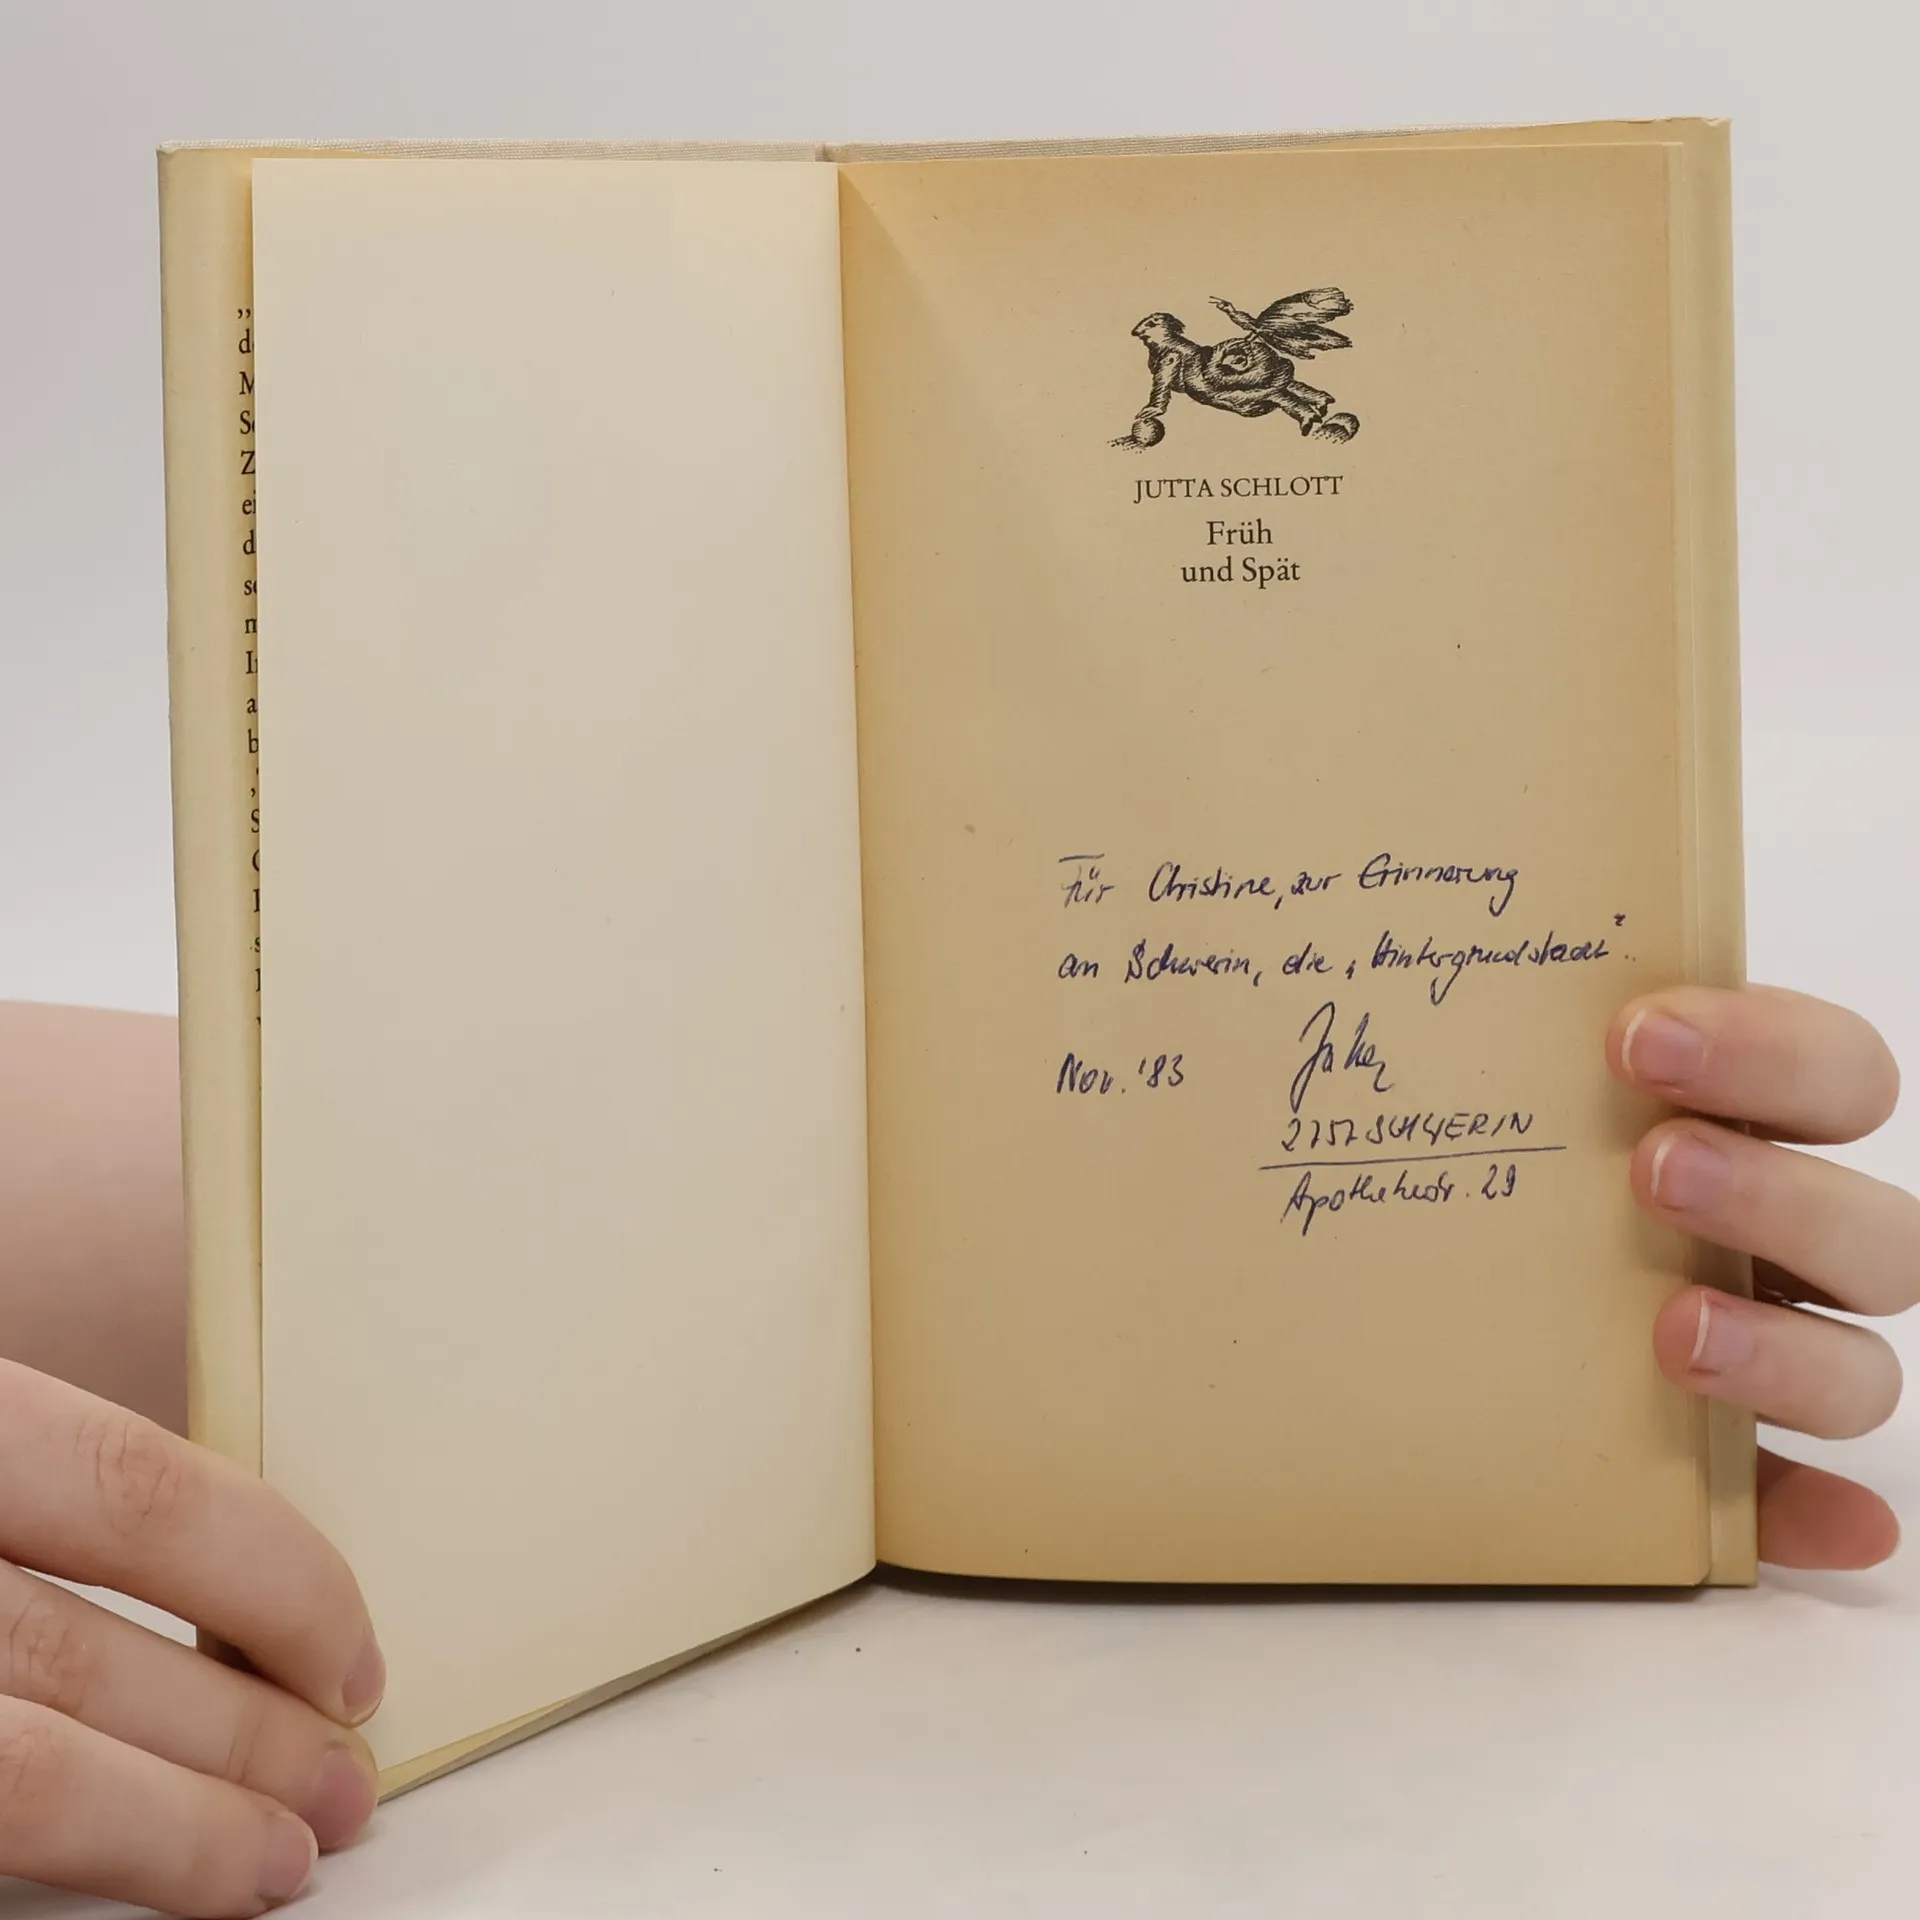 „
M
Z
JUTTA SCHLOTT
Früh
und Spät
Für Christine, zur Erinnerung
an Schwerin, die „Hintergrundstadt“.
Nov. '83
SCHWERIN
Apothekerstr. 29